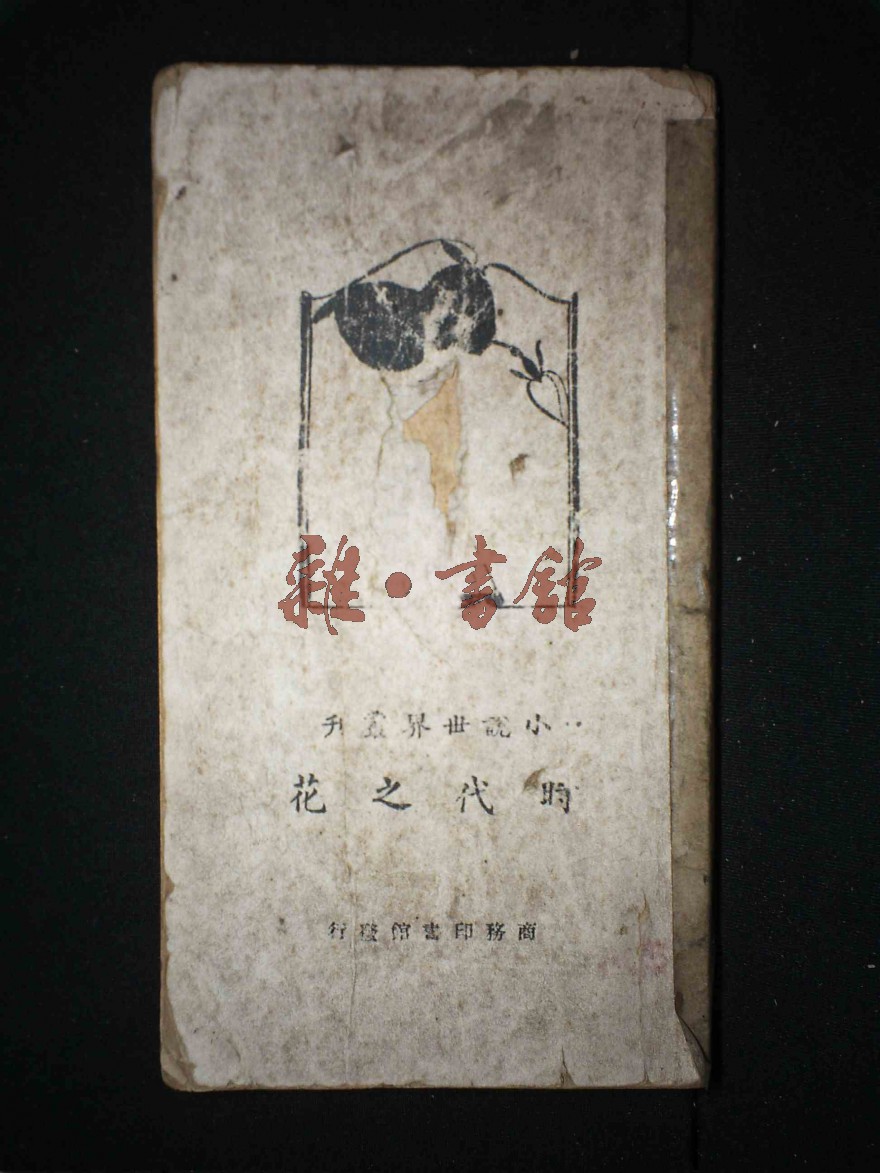 雜·書館
小說世界叢刊
時代之花
商務印書館發行